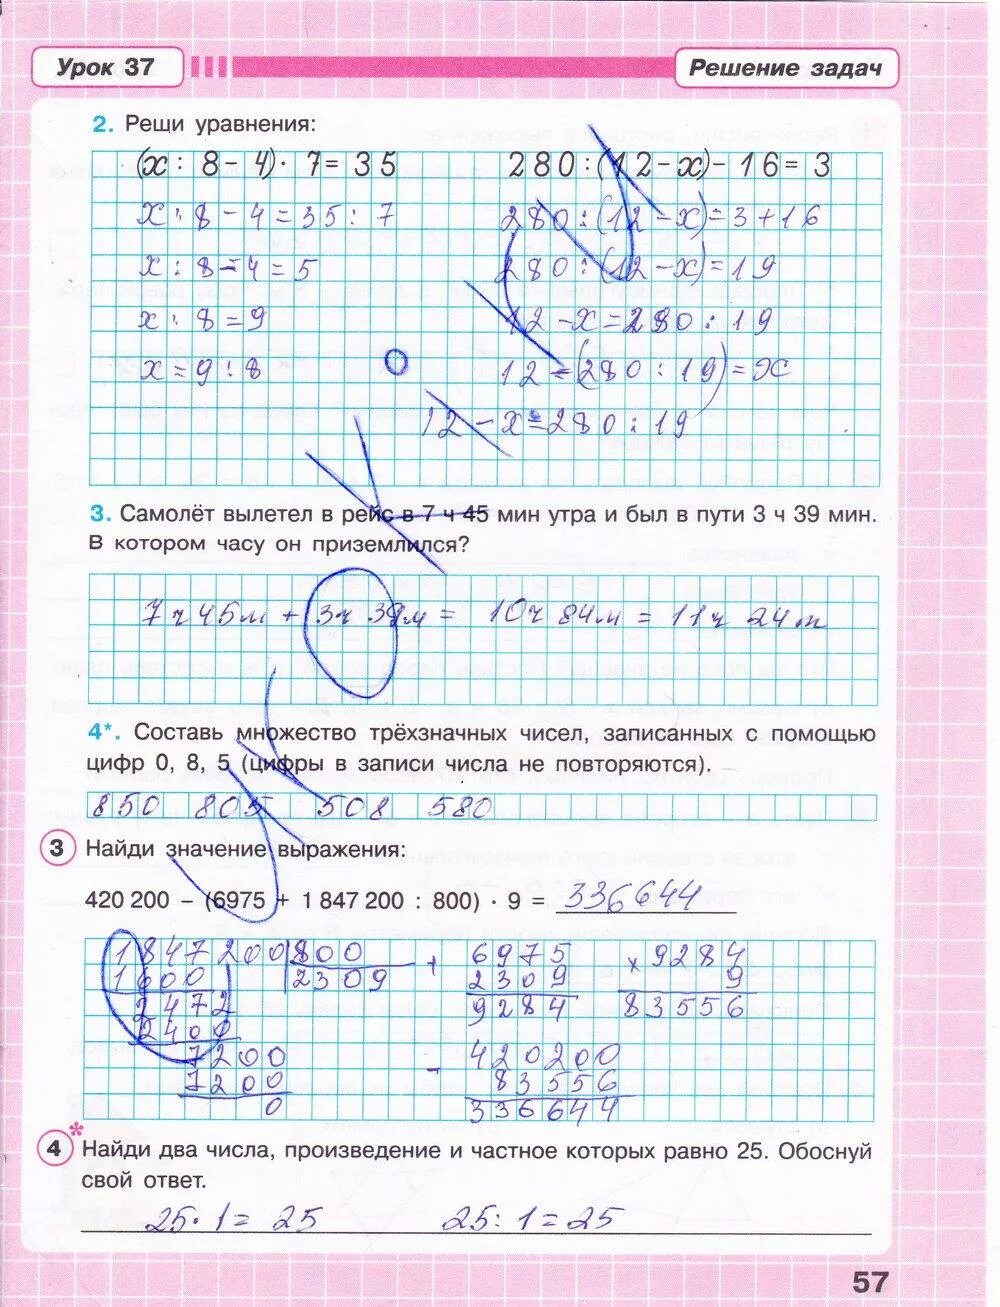 Урок 37
Решение задач
2. Рещи уравнения:
(x : 8 - 4) · 7 = 35
280 : (12 - x) - 16 = 3
x : 8 - 4 = 35 : 7
280 : (12 - x) = 3 + 16
x : 8 - 4 = 5
280 : (12 - x) = 19
x : 8 = 9
12 - x = 280 : 19
x = 9 : 8
12 - (280 : 19) = x
12 - x = 280 : 19
3. Самолёт вылетел в рейс в 7 ч 45 мин утра и был в пути 3 ч 39 мин.
В котором часу он приземлился?
7ч 45м + 3ч 39м = 10ч 84м = 11ч 24м
4*. Составь множество трёхзначных чисел, записанных с помощью
цифр 0, 8, 5 (цифры в записи числа не повторяются).
850 805 508 580
3 Найди значение выражения:
420 200 – (6975 + 1 847 200 : 800) · 9 = 336644
1847200 800
1600 2309
2472
2400
7200
7200
0
+ 6975
2309
9284
× 9284
9
83556
- 420200
83556
336644
4* Найди два числа, произведение и частное которых равно 25. Обоснуй
свой ответ.
25 · 1 = 25 25 : 1 = 25
57